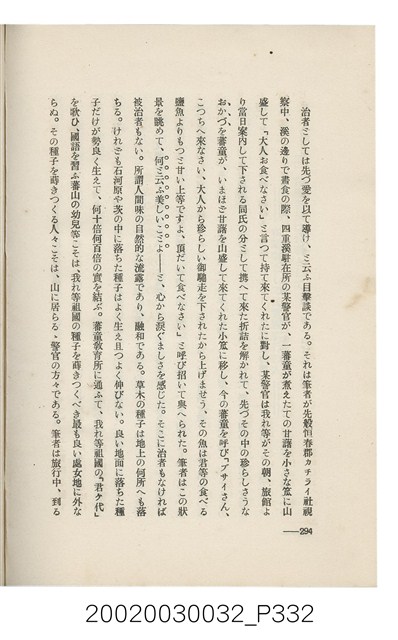 治者としては先づ愛を以て導け、と云ふ目擊談である。それは筆者が先般恒春郡カチライ社視
察中、溪の邊りで晝食の際、四重溪駐在所の某警官が、一蕃童が煮えたての甘藷を小さな笊に山
盛して「大人お食べなさい」と言つて持て來てくれたに對し、某警官は我れ等がその朝、旅館よ
り當日案內して下される同氏の分として携へて來た折詰を解かれて、先づその中の珍らしさうな
おかづを蕃童が、いまほど甘藷を山盛して來てくれた小笊に移し、今の蕃童を呼び「プサイさん、
こつちへ來なさい、大人から珍らしい御馳走を下されたから上げませう、その魚は君等の食べる
鹽魚よりもつと甘い上等ですよ、頂だいて食べなさい」と呼び招いて與へられた。筆者はこの狀
景を眺めて、何と云ふ美しいことよ――と、心から淚ぐましさを感じた。そこに治者もなければ
被治者もない。所謂人間味の自然的な流露であり、融和である。草木の種子は地上の何所へも落
ちる。けれども石河原や茨の中に落ちた種子はよく生え且つよく伸びない。良い地面に落ちた種
子だけが勢良く生えて、何十倍何百倍の實を結ぶ。蕃童敎育所に通ふて、我れ等祖國の「君ケ代」
を歌ひ、國語を習ふ蕃山の幼兒等こそは、我れ等祖國の種子を蒔きつくべき最も良い處女地に外な
らぬ。その種子を蒔きつくる人々こそは、山に居らる、警官の方々である。筆者は旅行中、到る
――294
20020030032_P332